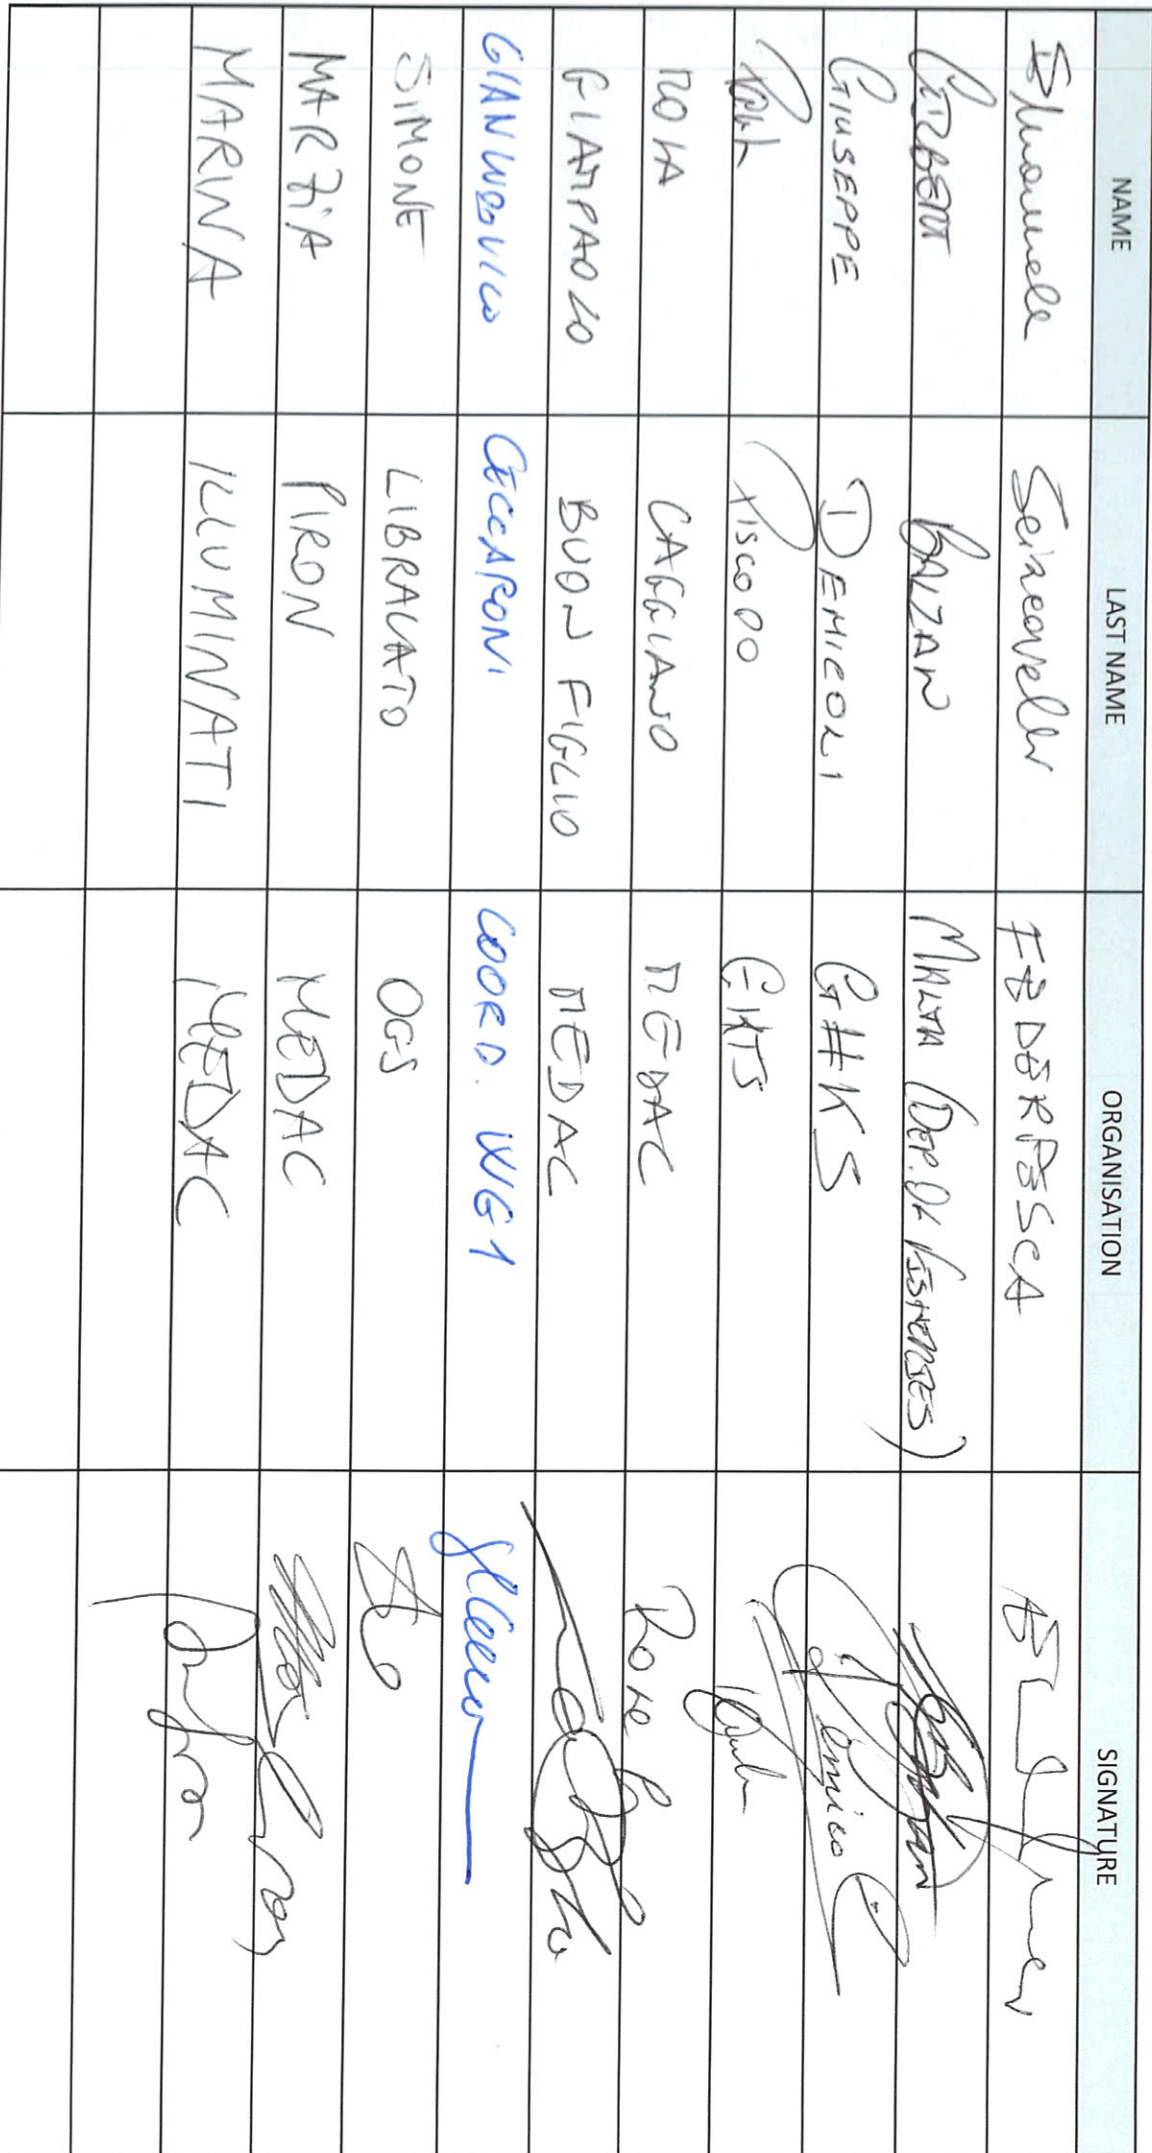 NAME LAST NAME ORGANISATION SIGNATURE
Emanuele Sciacovelli FEDERPESCA
GILBERT BALZAN MALTA (DEP. OF FISHERIES)
GIUSEPPE DEMICOLI GHKS
Paul Piscopo GHKTS
ROSA CAGGIANO MEDAC
GIAMPAOLO BUONFIGLIO MEDAC
GIANLUDOVICO CECCARONI COORD. WG1
SIMONE LIBRALATO OGS
MARZIA PIRON MEDAC
MARINA ILLUMINATI MEDAC